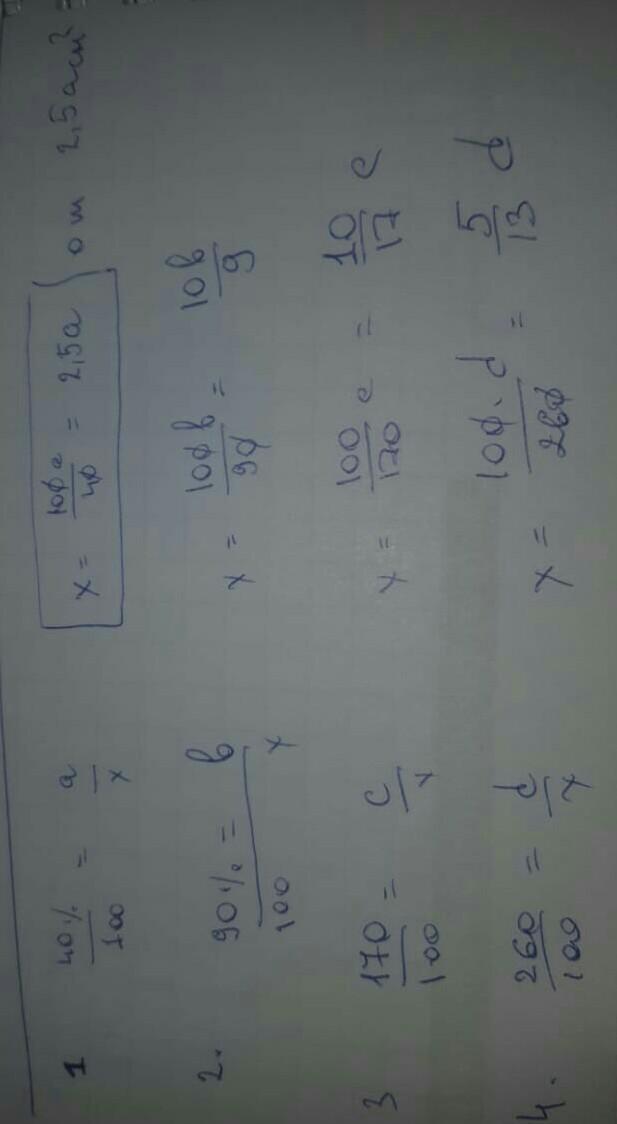 1 40%/100 = a/x x = 100a/40 = 2,5a от 2,5a
2. 90%/100 = b/x x = 100b/90 = 10b/9
3 170/100 = c/x x = 100/170 c = 10/17 c
4. 260/100 = d/x x = 100·d/260 = 5/13 d